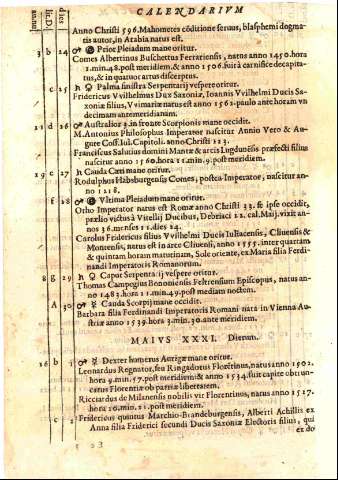 dies
lit.D.
au.nu.
CALENDARIVM
Anno Christi 596. Mahometes cōditione seruus, blasphemi dogma-
tis autor, in Arabia natus est.
3 b 24 ♂ ☿ Prior Pleiadum mane oritur.
Comes Albertinus Buschettus Ferrariensis, natus anno 1450. hora
1. min. 48. post meridiem. & anno 1506. fuit à carnifice decapita-
tus, & in quatuor artus discerptus.
c 25 ♄ ♀ Palma sinistra Serpentarij vespere oritur.
Fridericus VVilhelmus Dux Saxoniæ, Ioannis VVilhelmi Ducis Sa-
xoniæ filius, VVimariæ natus est anno 1562. paulo ante horam vn
decimam antemeridianam.
11 d 26 ♂ Australior 3. in fronte Scorpionis mane occidit.
M. Antonius Philosophus Imperator nascitur Annio Vero & Au-
gure Coss. Iul. Capitoli. anno Christi 123.
Franciscus Salucius domini Mantæ & arcis Lugdunēsis præfecti filius
nascitur anno 1560. hora 11. min. 9. post meridiem.
19 e 27 ♄ Cauda Cæti mane oritur.
Rodulphus Habsburgensis Comes, postea Imperator, nascitur an-
no 1218.
f 28 ♂ Vltima Pleiadum mane oritur.
Otho Imperator natus est Romæ anno Christi 33. se ipse occidit,
prælio victus à Vitellij Ducibus, Debriaci 22. cal. Maij. vixit an-
nos 36. menses 11. dies 24.
Carolus Fridericus filius VVilhelmi Ducis Iuliacensis, Cliuensis &
Montensis, natus est in arce Cliuensi, anno 1555. inter quartam
& quintam horam matutinam, Sole oriente, ex Maria filia Ferdi-
nandi Imperatoris Romanorum.
8 g 29 ♄ ♀ Caput Serpentarij vespere oritur.
Thomas Campegius Bononiensis Feltrensium Episcopus, natus an-
no 1483. hora 21. min. 49. post mediam noctem.
A 30 ♂ ☿ Cauda Scorpij mane occidit.
Barbara filia Ferdinandi Imperatoris Romani nata in Vienna Au-
striæ anno 1539. hora 3. min. 30. ante meridiem.
MAIVS XXXI. Dierum.
16 b 1 ♂ ☿ Dexter humerus Aurigæ mane oritur.
Leonardus Regnator, seu Ringadotus Florētinus, natus anno 1502.
hora 9. min. 57. post meridiem & anno 1534. fuit capite obtrun-
catus Florentiæ ob patriæ libertatem.
Ricciardus de Milanensis nobilis vir Florentinus, natus anno 1527.
hora 10. min. 21. post meridiem.
c 2 Fridericus quintus Marchio-Brandeburgensis, Alberti Achillis ex
Anna filia Friderici secundi Ducis Saxoniæ Electoris filius, qui
ex do